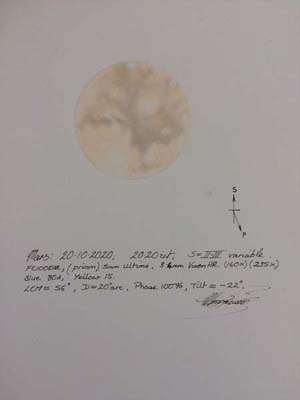 S
P
Mars: 20-10-2020, 20:20 ut, S=II-III variable.
FC100DZ, (prism) 5mm Ultima, 3.4mm Vixen HR. (160x) (235x)
Blue 80A, Yellow 15.
LCM = 56°, D=20"arc, Phase 100%, Tilt = -22°.